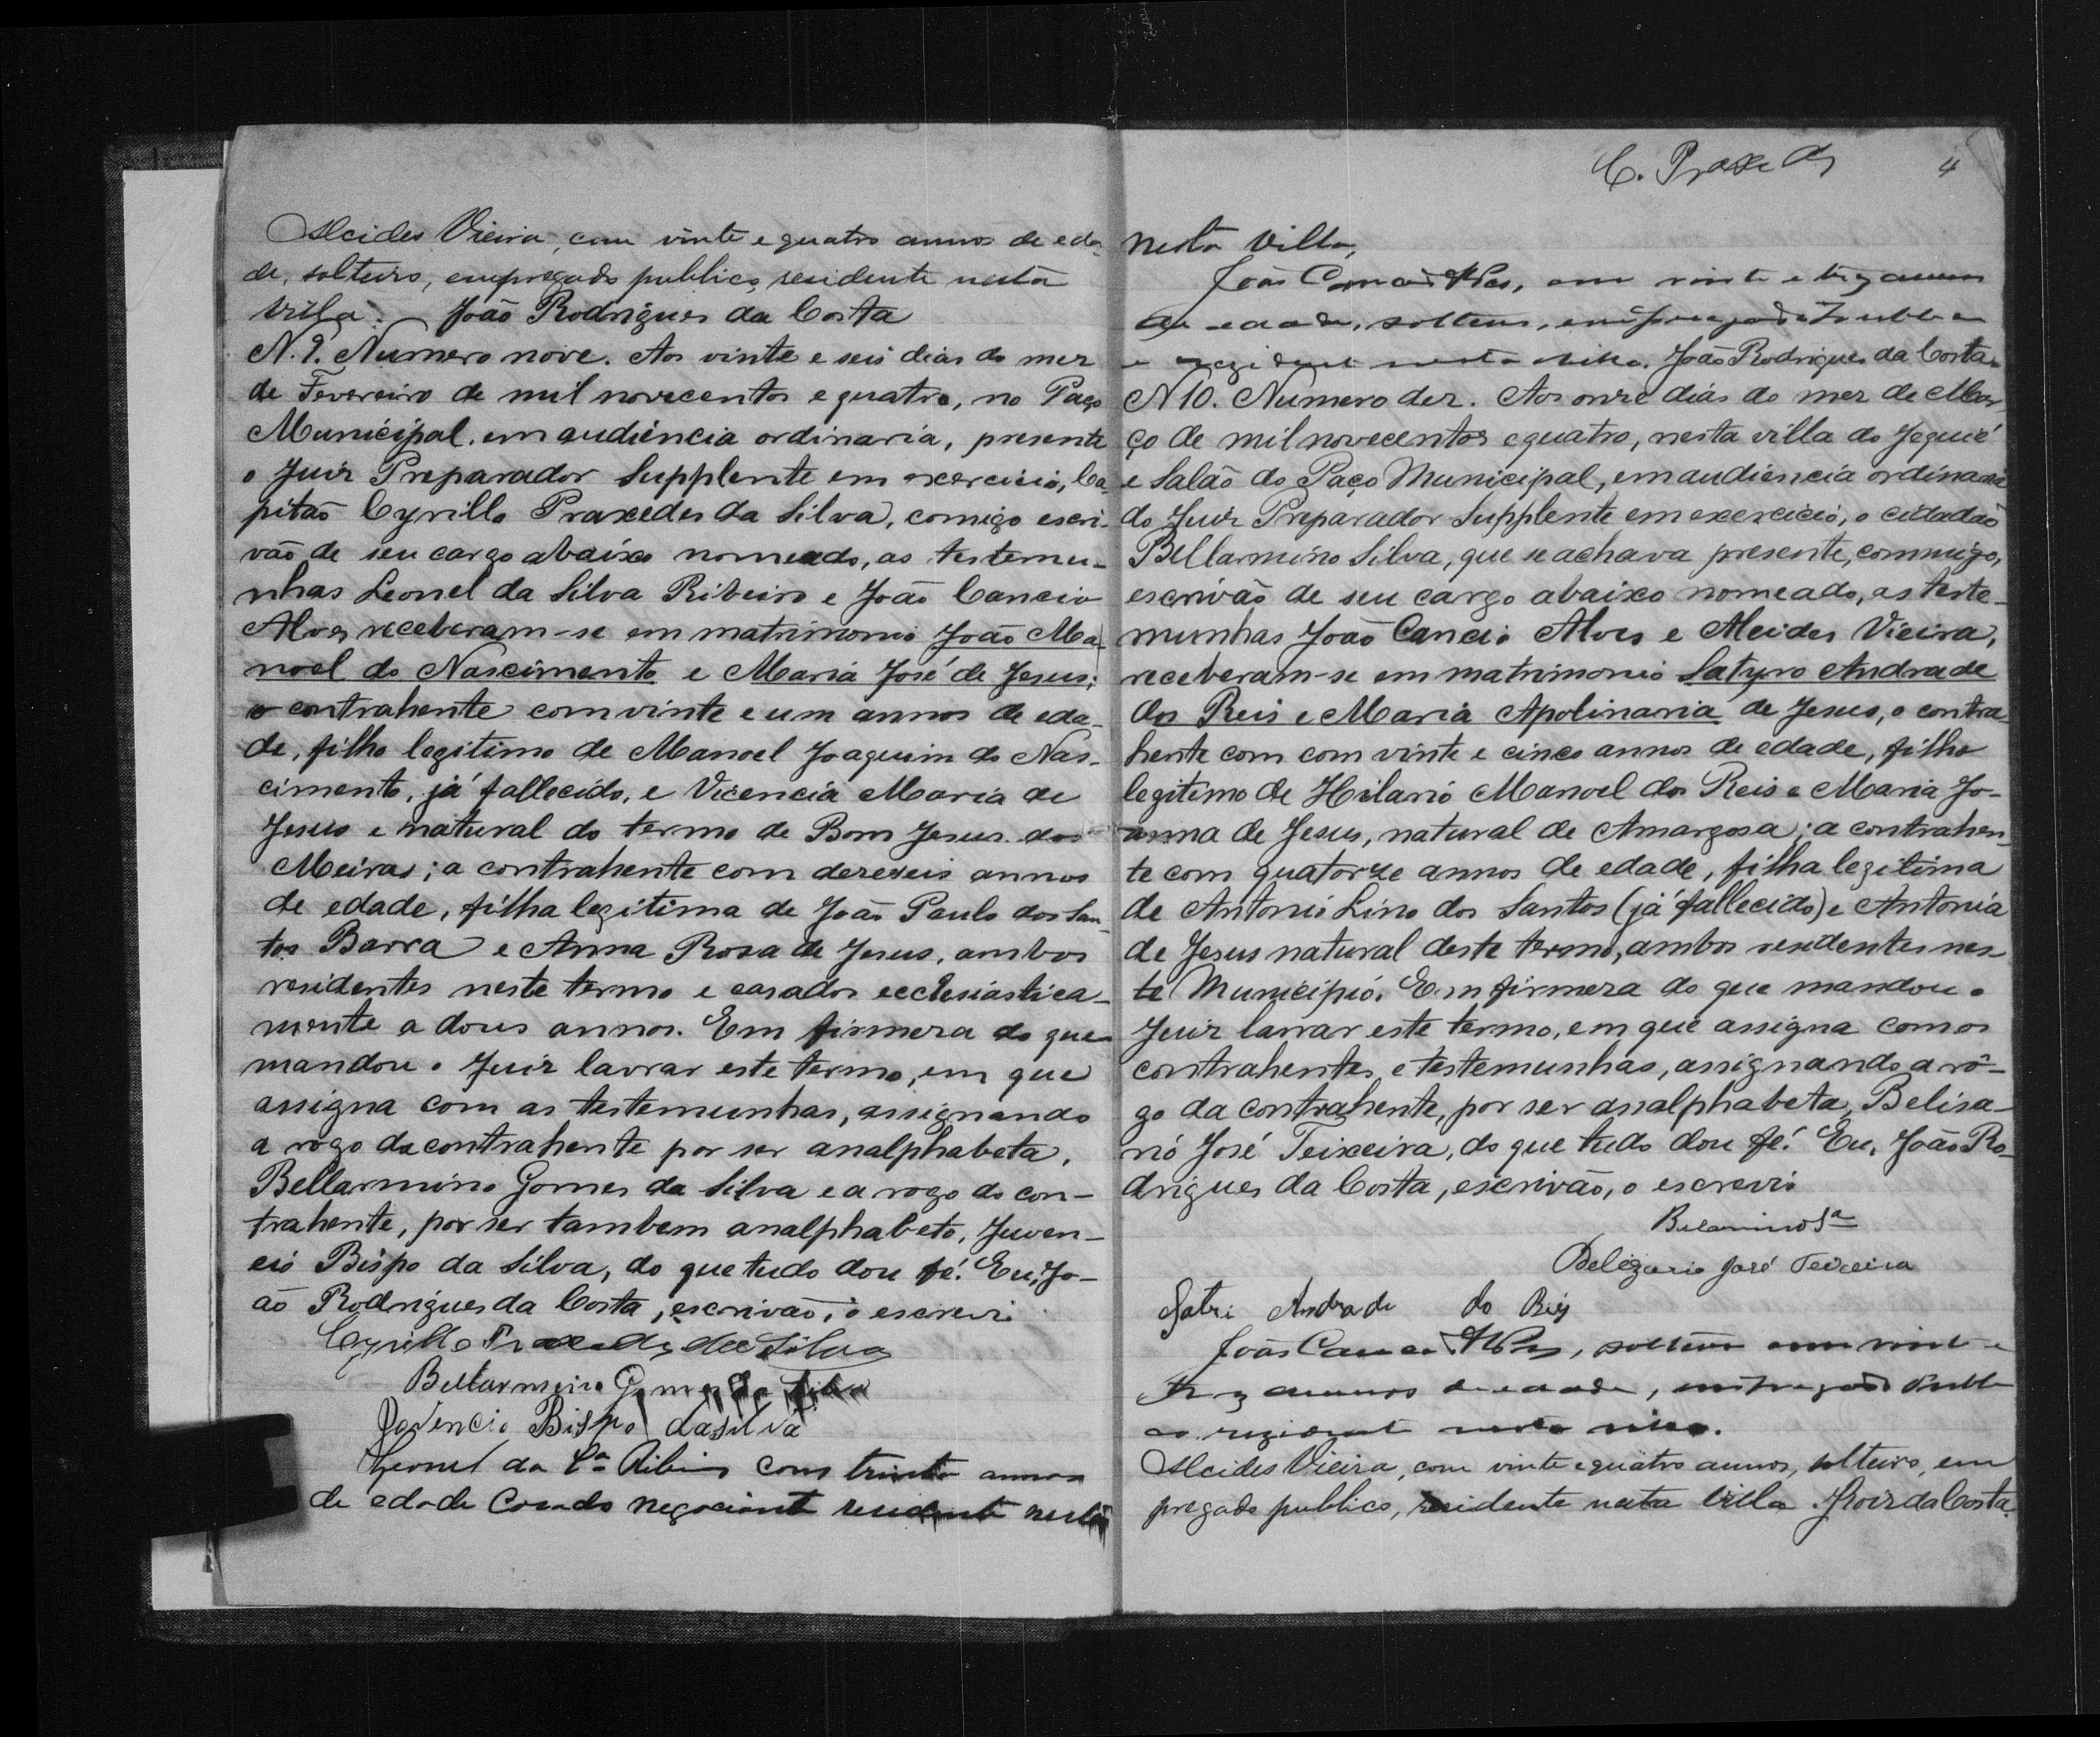 Alcides Vieira, com vinte e quatro annos de eda-
de, solteiro, empregado publico, residente nesta
Villa. João Rodrigues da Costa
N. 9. Numero nove. Aos vinte e seis dias do mez
de Fevereiro de mil novecentos e quatro, no Paço
Municipal, em audiencia ordinaria, presente
o Juiz Preparador Supplente em exercicio, Ca-
pitão Cyrillo Praxedes da Silva, comigo escri-
vão de seu cargo abaixo nomeado, as testemu-
nhas Leonel da Silva Ribeiro e João Cancio
Alves receberam-se em matrimonio João Ma-
noel do Nascimento e Maria José de Jesus;
o contrahente com vinte e um annos de eda-
de, filho legitimo de Manoel Joaquim do Nas-
cimento, já fallecido, e Vicencia Maria de
Jesus e natural do termo de Bom Jesus dos
Meiras; a contrahente com dezeseis annos
de edade, filha legitima de João Paulo dos San-
tos Barra e Anna Rosa de Jesus, ambos
residentes neste termo e casados ecclesiastica-
mente a dous annos. Em firmeza do que
mandou o Juiz lavrar este termo, em que
assigna com as testemunhas, assignando
a rogo da contrahente por ser analphabeta,
Bellarmino Gomes da Silva e a rogo do con-
trahente, por ser tambem analphabeto, Juven-
cio Bispo da Silva, do que tudo dou fé. Eu, Jo-
ão Rodrigues da Costa, escrivão, o escrevi
Cyrillo Praxedes da Silva
Bellarmino Gomes da Silva
Jovencio Bispo da silva
Leonel da Sª Ribeiro com trinta annos
de edade Casado negociante residente nesta
C. Praxedes
4
nesta Villa,
João Cancio Alves, com vinte e trez annos
de edade, solteiro, empregado Publico
e rezidente nesta villa. João Rodrigues da Costa
N 10. Numero dez. Aos onze dias do mez de Mar-
ço de mil novecentos e quatro, nesta villa do Jequié
e Salão do Paço Municipal, em audiencia ordinaria
do Juiz Preparador Supplente em exercicio, o cidadão
Bellarmino Silva, que se achava presente, commigo,
escrivão de seu cargo abaixo nomeado, as teste-
munhas João Cancio Alves e Alcides Vieira,
receberam-se em matrimonio Satyro Andrade
dos Reis e Maria Apolinaria de Jesus, o contra-
hente com com vinte e cinco annos de edade, filho
legitimo de Hilario Manoel dos Reis e Maria Jo-
anna de Jesus, natural de Amargosa; a contrahen-
te com quatorze annos de edade, filha legitima
de Antonio Lino dos Santos (já fallecido) e Antonia
de Jesus natural deste termo, ambos residentes nes-
te Municipio. Em firmeza do que mandou o
Juiz lavrar este termo, em que assigna com os
contrahentes e testemunhas, assignando a rô-
go da contrahente, por ser analphabeta, Belisa-
rio José Teixeira, do que tudo dou fé. Eu, João Ro-
drigues da Costa, escrivão, o escrevi
Belarmino Sª
Belizario José Teixeira
Satri Andrade do Reis
João Cancio Alves, solteiro com vinte e
trez annos de edade, empregado Publi
co rezidente nesta villa.
Alcides Vieira, com vinte e quatro annos, solteiro, em
pregado publico, residente nesta Villa. Jroiz da Costa.